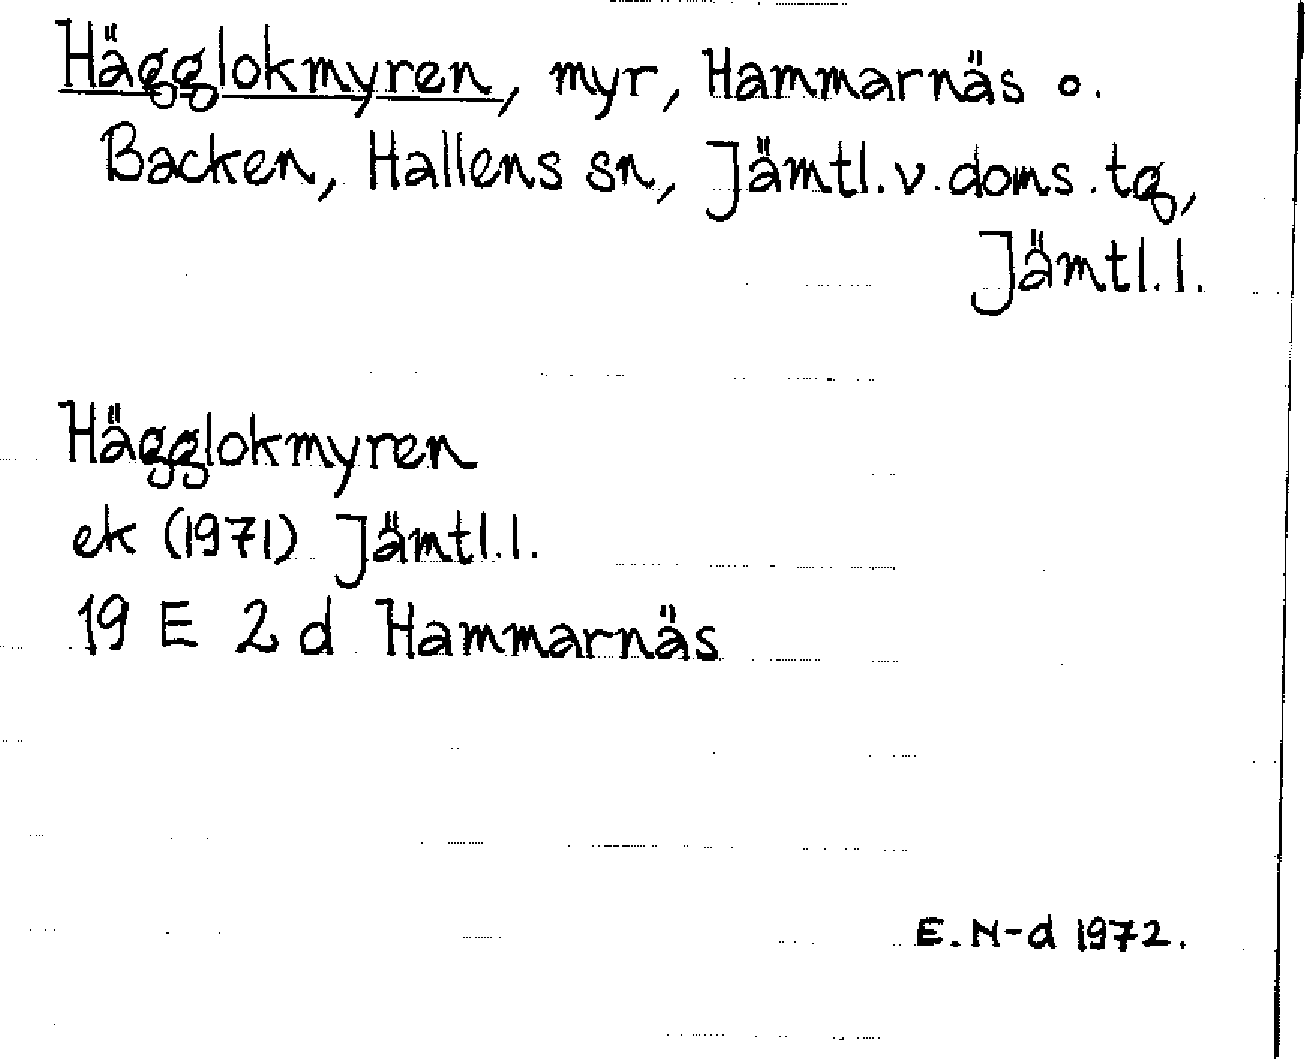 Hägglokmyren, myr, Hammarnäs o.
Backen, Hallens sn, Jämtl. v. doms. tg,
Jämtl. l.
Hägglokmyren
ek (1971) Jämtl. l.
19 E 2 d Hammarnäs
E. N-d 1972.